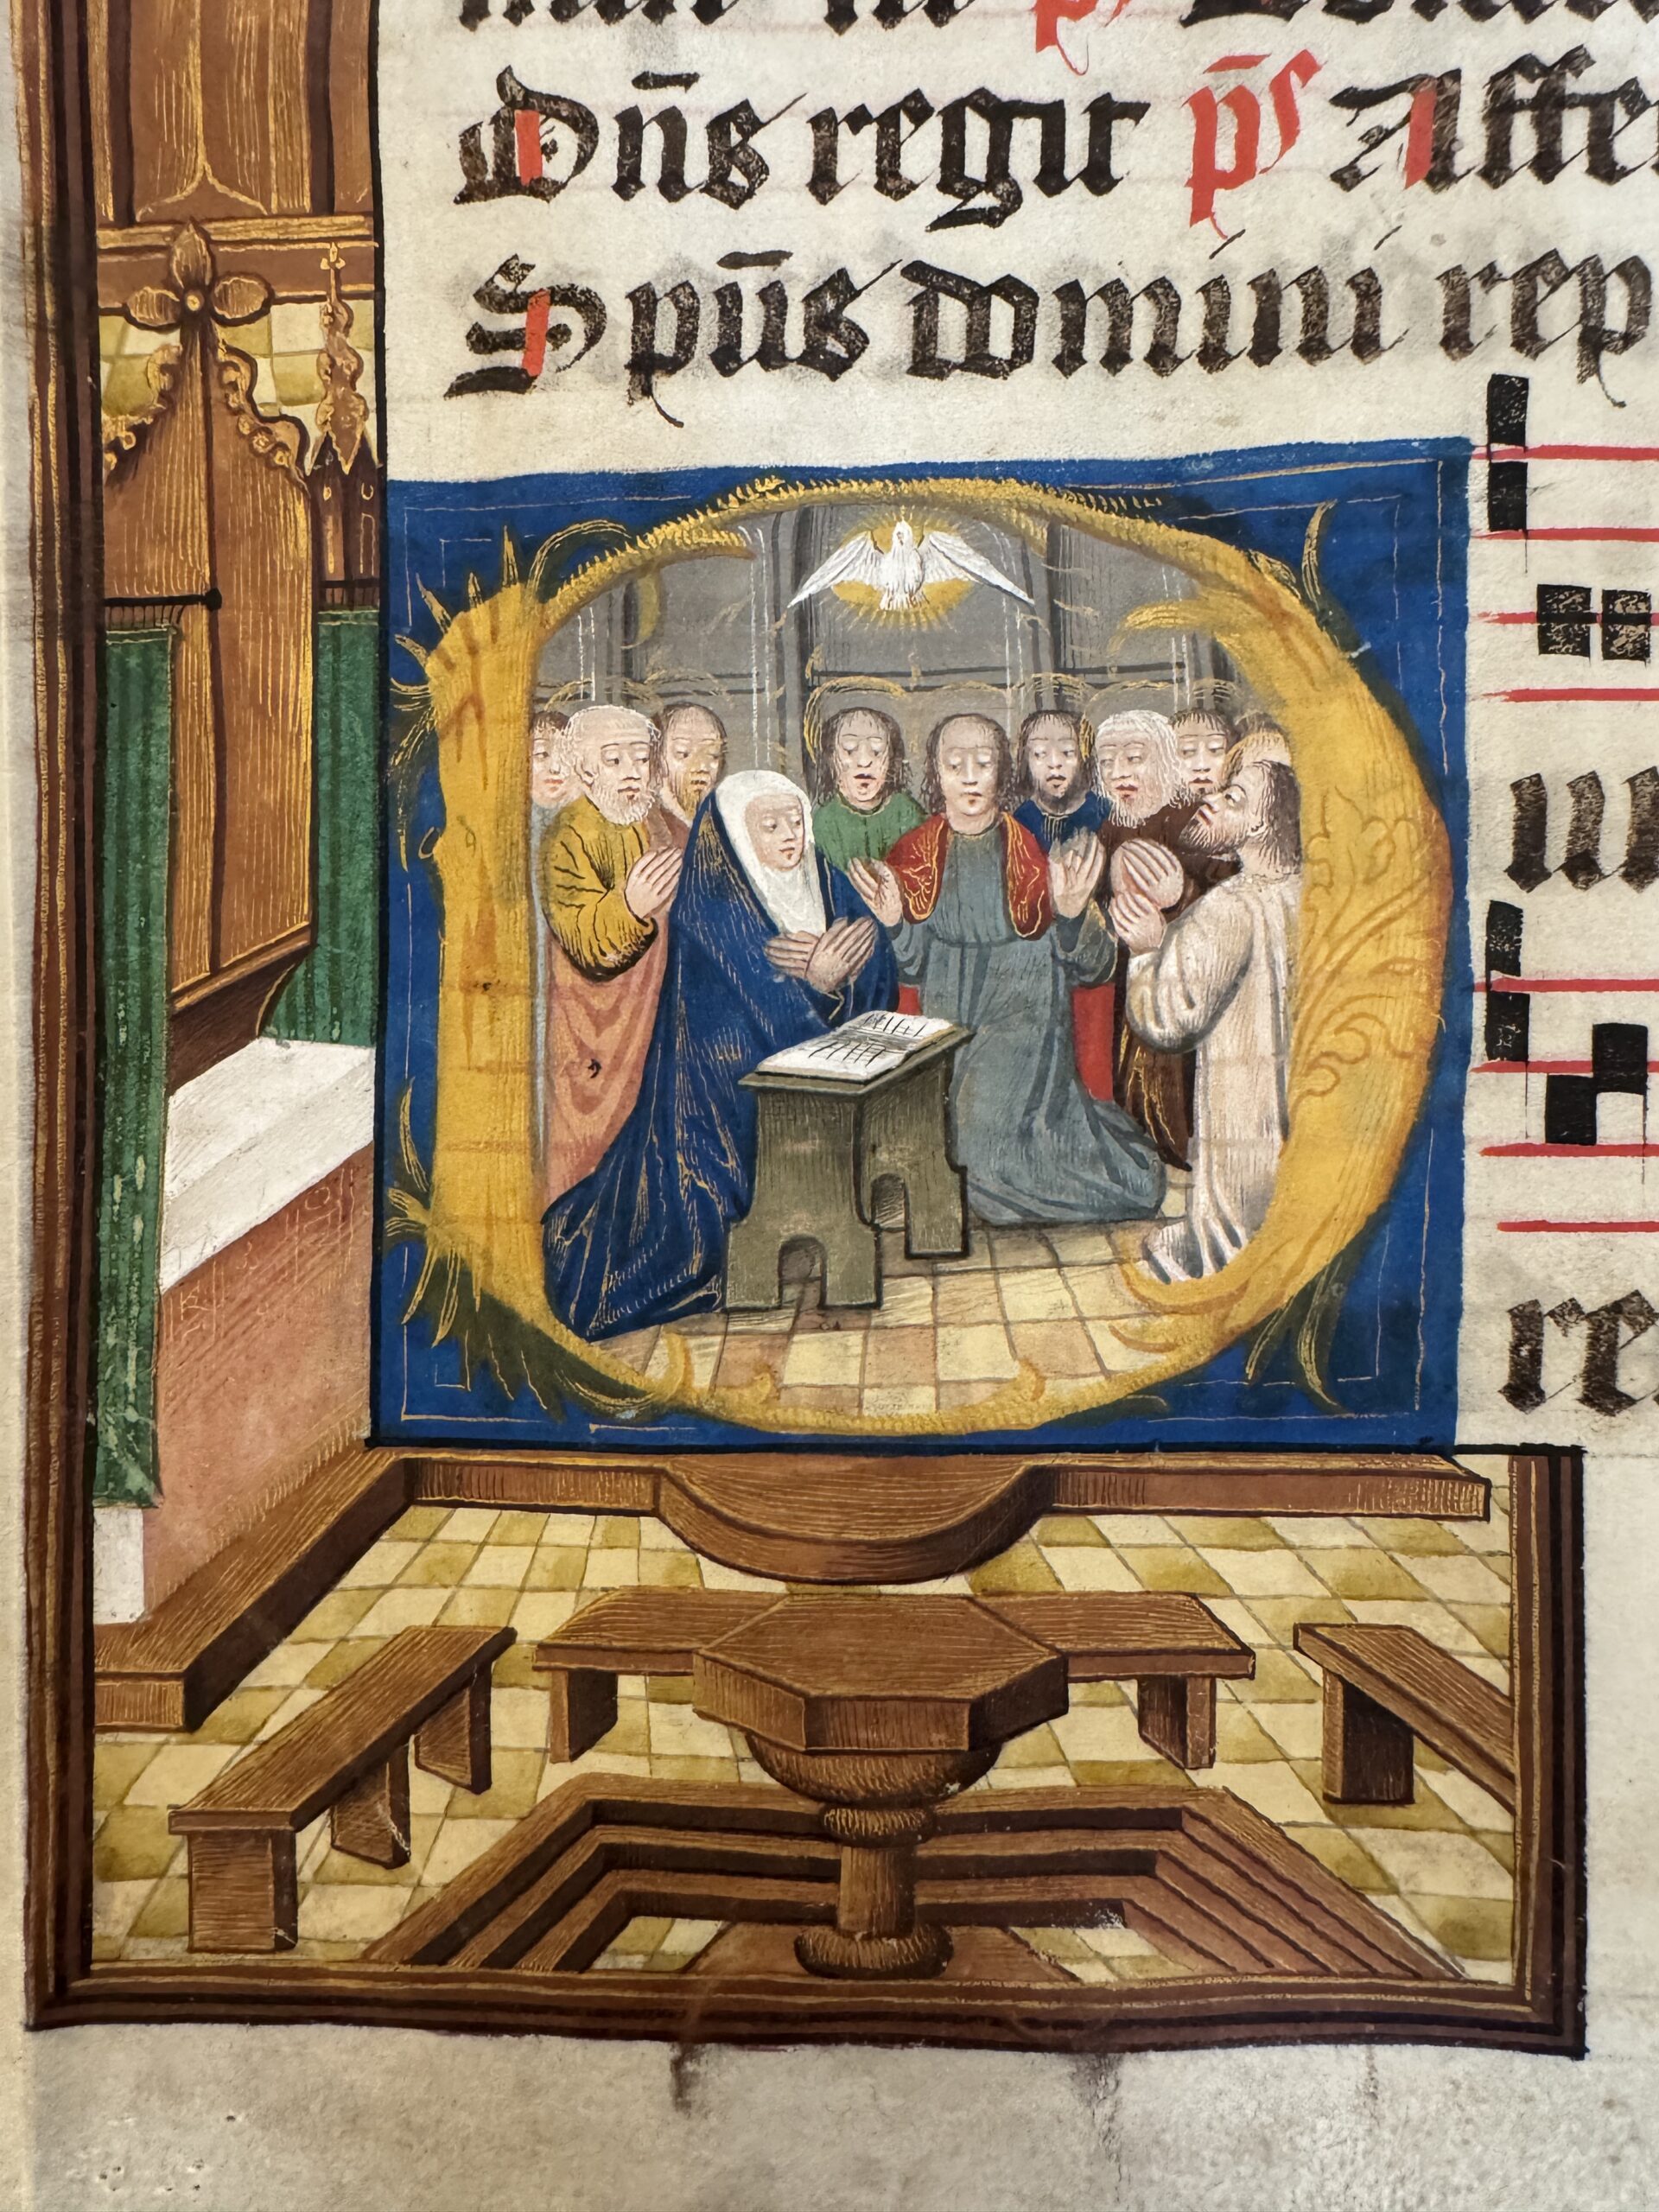 Dn̄s regit p̄s Affe
Spūs domini rep
D
re